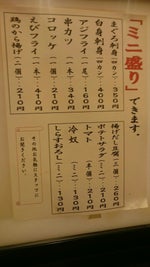 「ミニ盛り」できます。
まぐろ刺身(四カン)350円
白身刺身(四カン)400円
アジフライ(一尾)160円
串カツ(一本)210円
コロッケ(一個)210円
えびフライ(一本)340円
鶏のから揚げ(二個)210円
揚げだし豆腐(二個)260円
ポテトサラダ(ミニ)210円
トマト(半個)210円
冷奴(ミニ)130円
しらすおろし(ミニ)130円
その他お気軽にスタッフに
お聞きください。